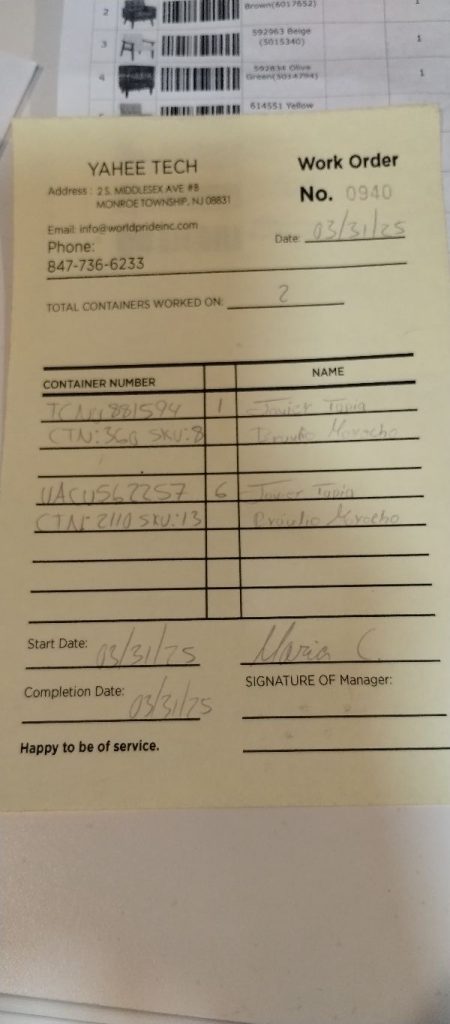 2
Brown(6017652)
1
3
592963 Beige
(5015340)
1
4
Green(5014794)
1
614551 Yellow
YAHEE TECH
Work Order
Address : 2 S. MIDDLESEX AVE #8
MONROE TOWNSHIP, NJ 08831
No. 0940
Email: info@worldprideinc.com
Date: 03/31/25
Phone:
847-736-6233
TOTAL CONTAINERS WORKED ON: 2
CONTAINER NUMBER NAME
881594 1 Javier Tapia
CTN:360 SKU:8 Braulio Morocho
UACU562257 6 Javier Tapia
CTN:2110 SKU:13 Braulio
Start Date: 03/31/25 Maria C.
Completion Date: 03/31/25 SIGNATURE OF Manager:
Happy to be of service.